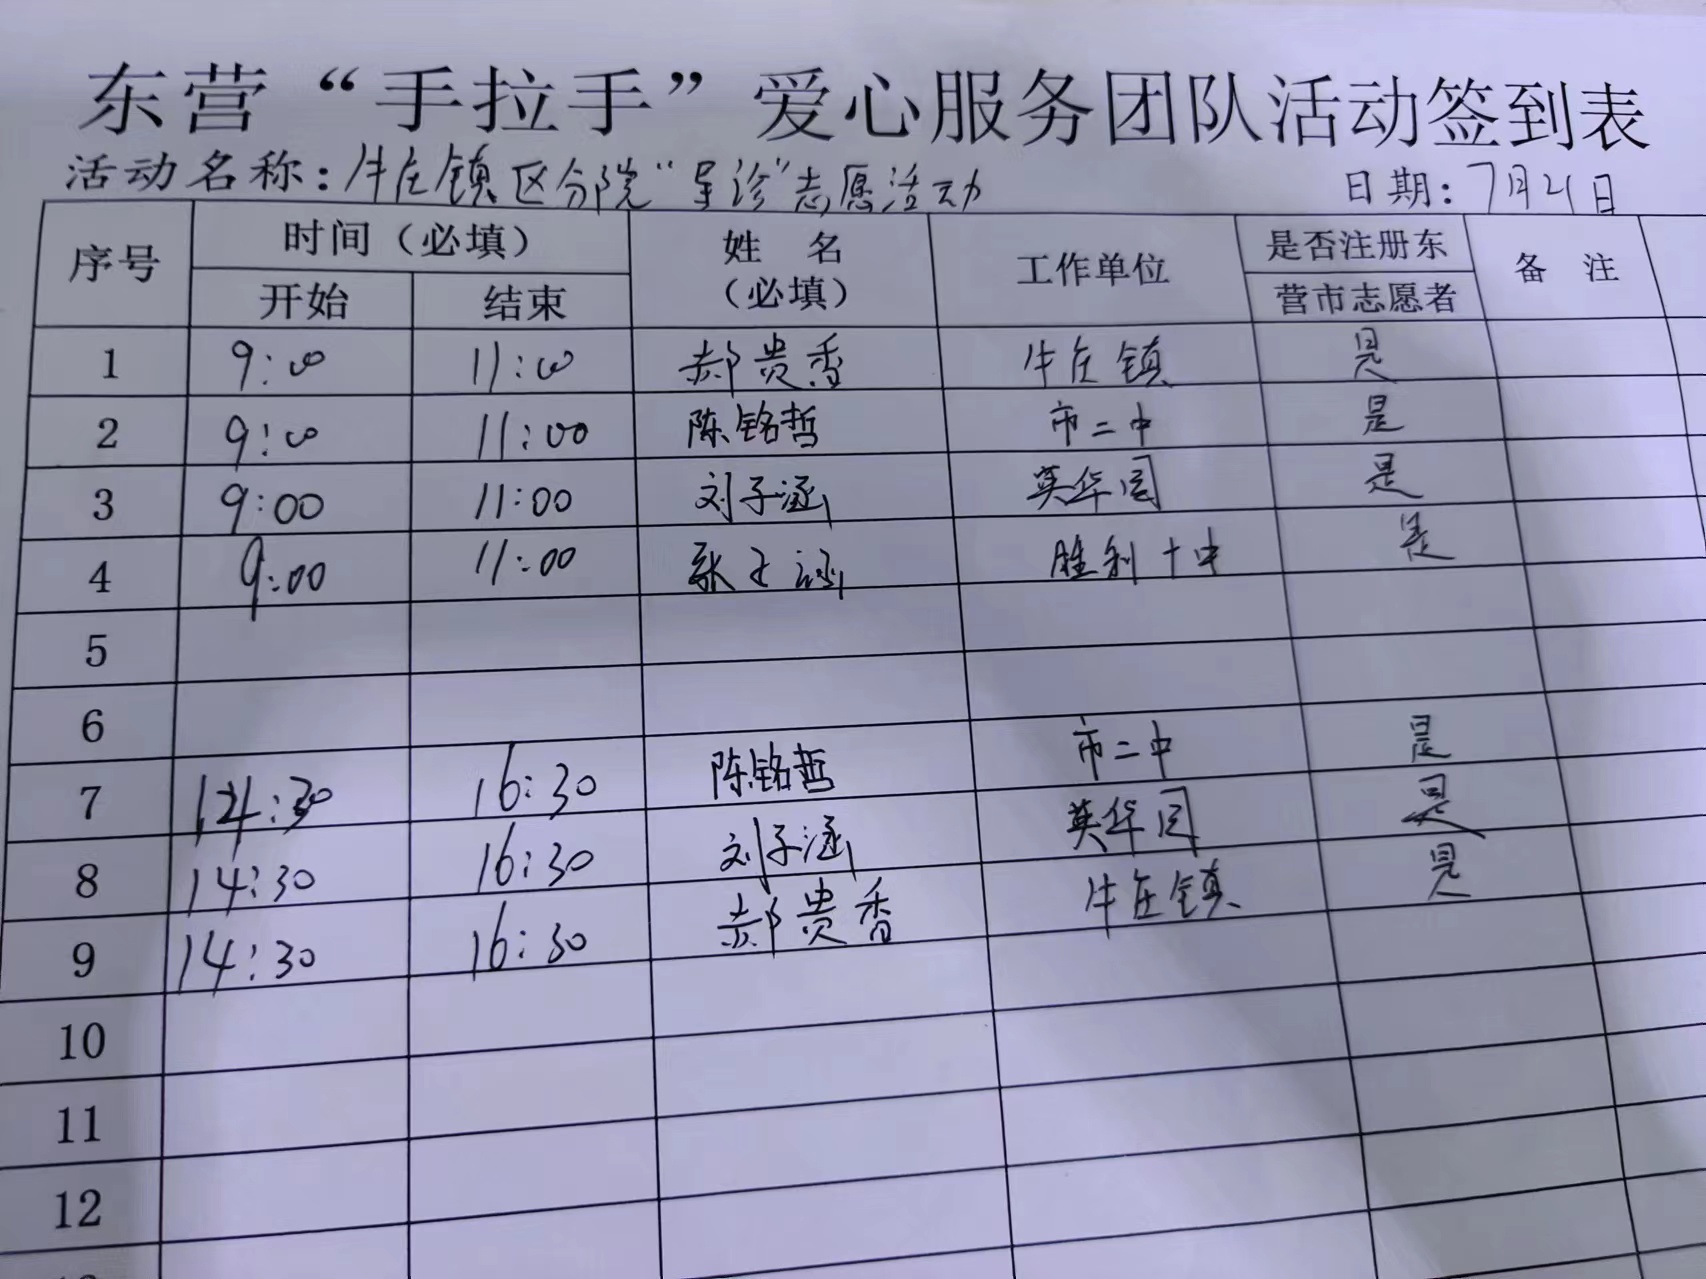 东营“手拉手”爱心服务团队活动签到表
活动名称:牛庄镇区分院“导诊”志愿活动 日期:7月21日
序号 时间(必填) 姓名(必填) 工作单位 是否注册东营市志愿者 备注
开始 结束
1 9:00 11:00 郝贵香 牛庄镇 是
2 9:00 11:00 陈铭哲 市二中 是
3 9:00 11:00 刘子涵 英华园 是
4 9:00 11:00 张子涵 胜利十中 是
5
6
7 14:30 16:30 陈铭哲 市二中 是
8 14:30 16:30 刘子涵 英华园 是
9 14:30 16:30 郝贵香 牛庄镇 是
10
11
12